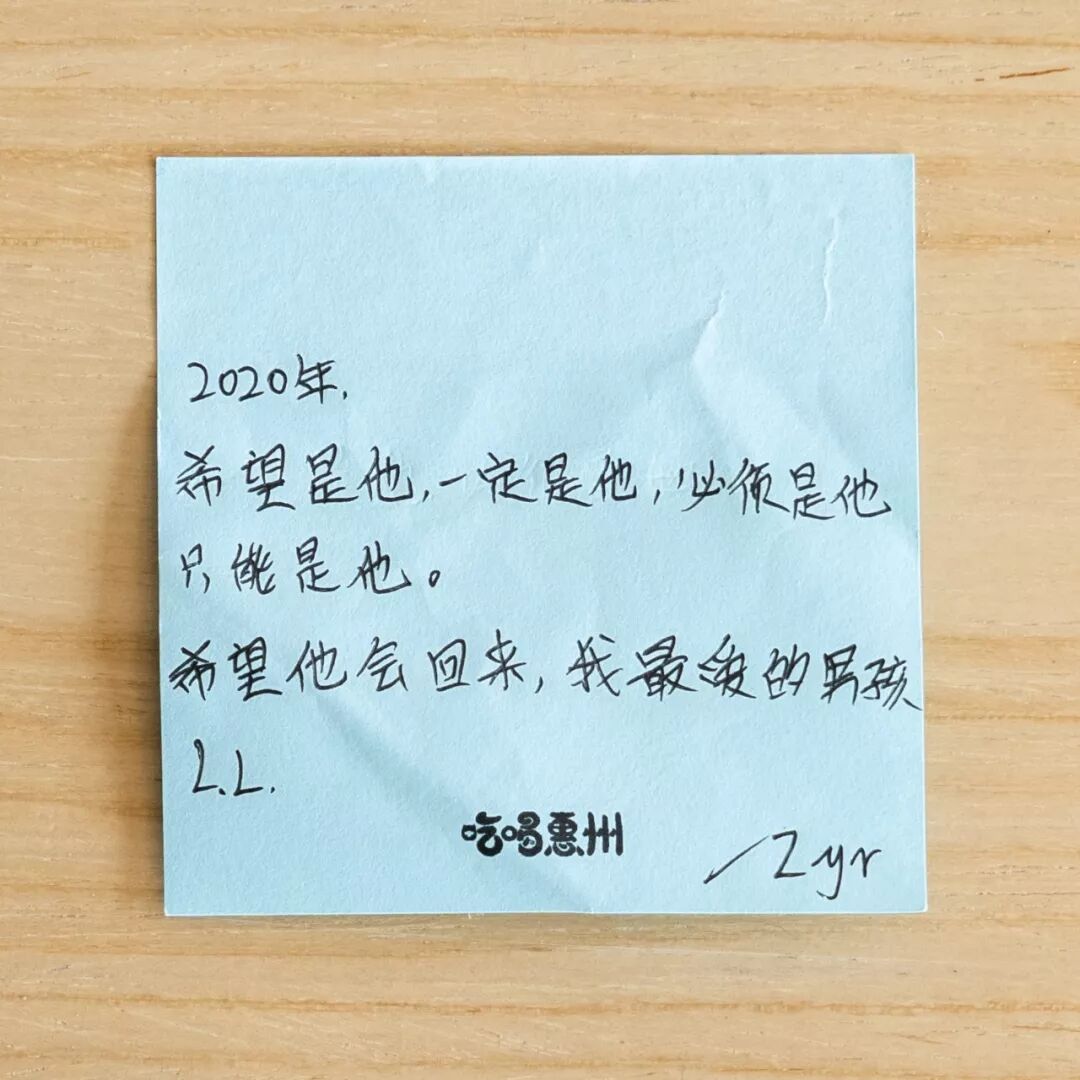 2020年.
希望是他,一定是他,必须是他
只能是他。
希望他会回来,我最爱的男孩
L.L.
吃喝惠州
Zyr